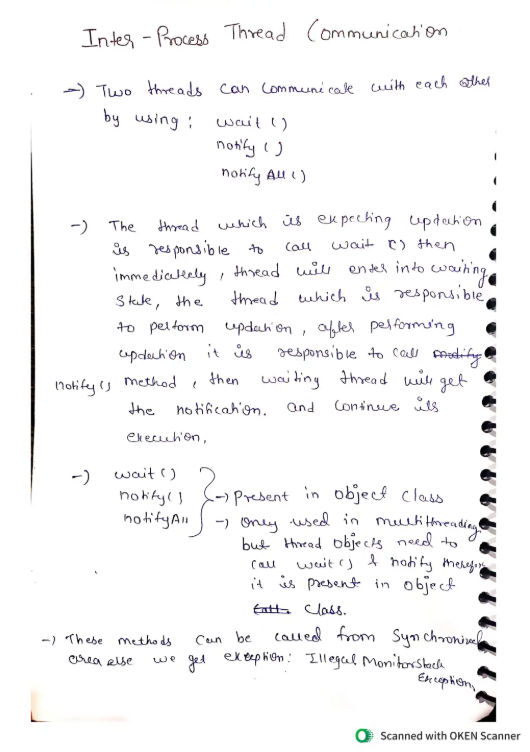 Inter - Process Thread Communication
-) Two threads can communicate with each other
by using : wait ()
notify ()
notify All ()
-) The thread which is expecting updation
is responsible to call wait () then
immediately, thread will enter into waiting
State, the thread which is responsible
to perform updation, after performing
updation it is responsible to call modify
notify () method, then waiting thread will get
the notification. and continue its
execution.
-) wait ()
notify ()
notifyAll
-) Present in object class
-) only used in multithreading
but thread objects need to
call wait () & notify therefore
it is present in object
Class.
-) These methods can be called from Synchronized
area else we get exception: Illegal MonitorStack
Exception,
Scanned with OKEN Scanner